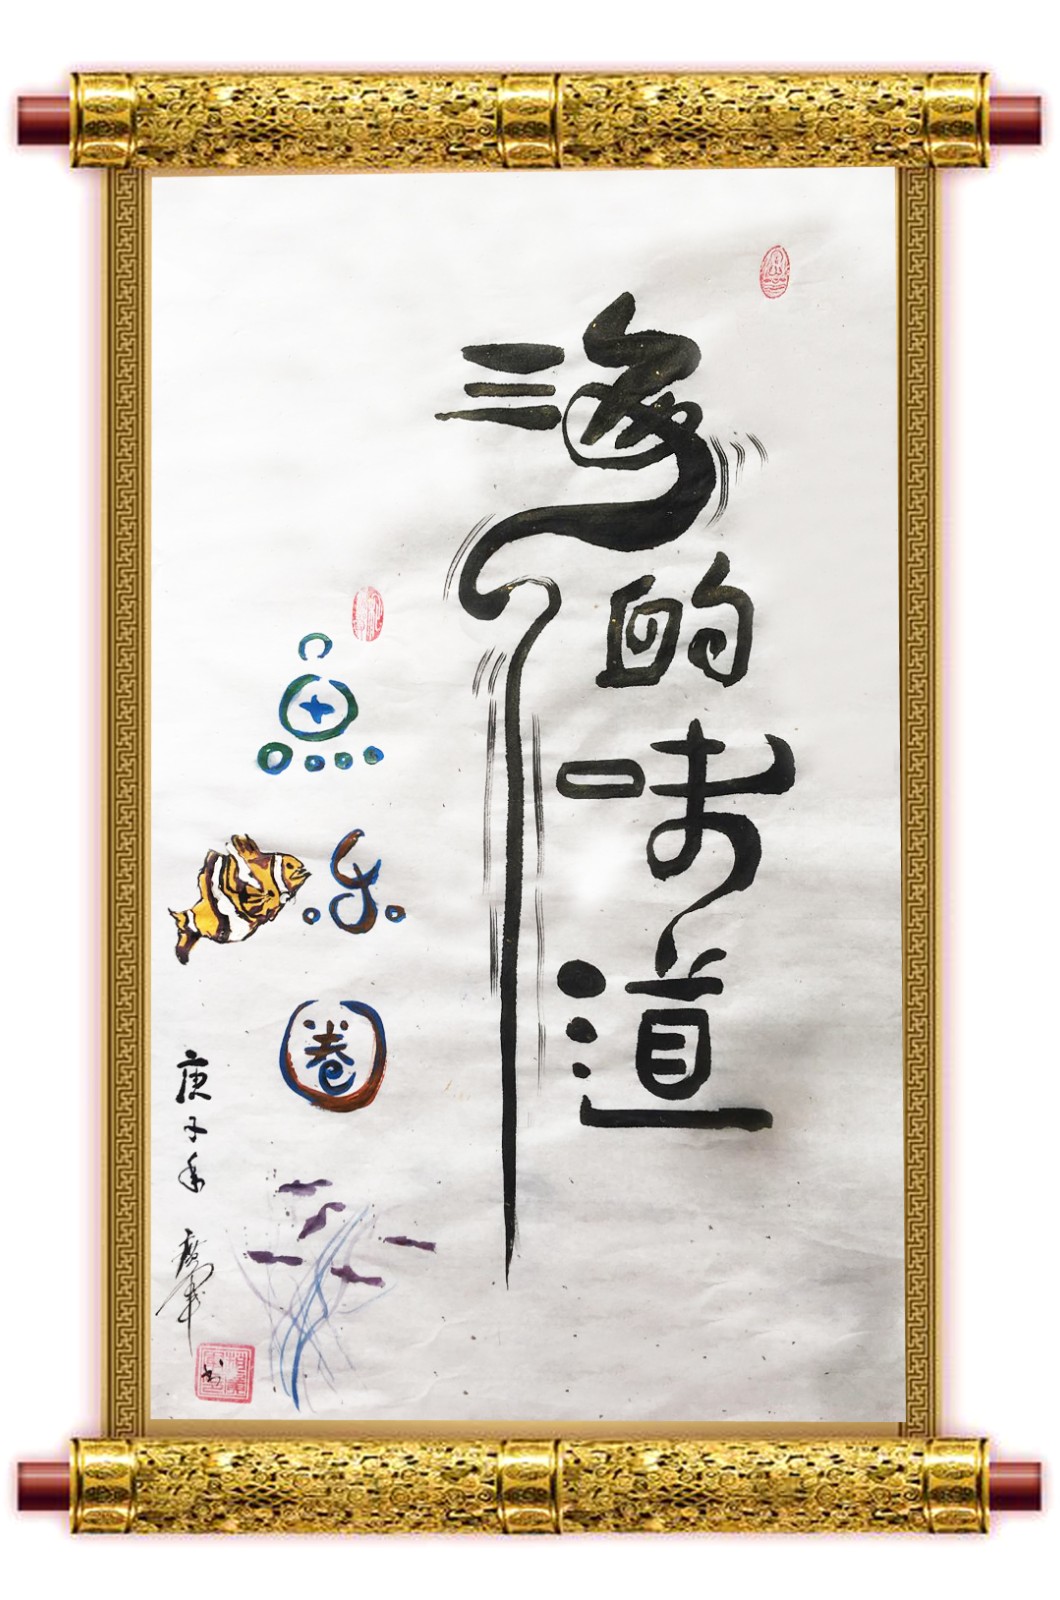 海的味道
鱼乐圈
庚子年
书